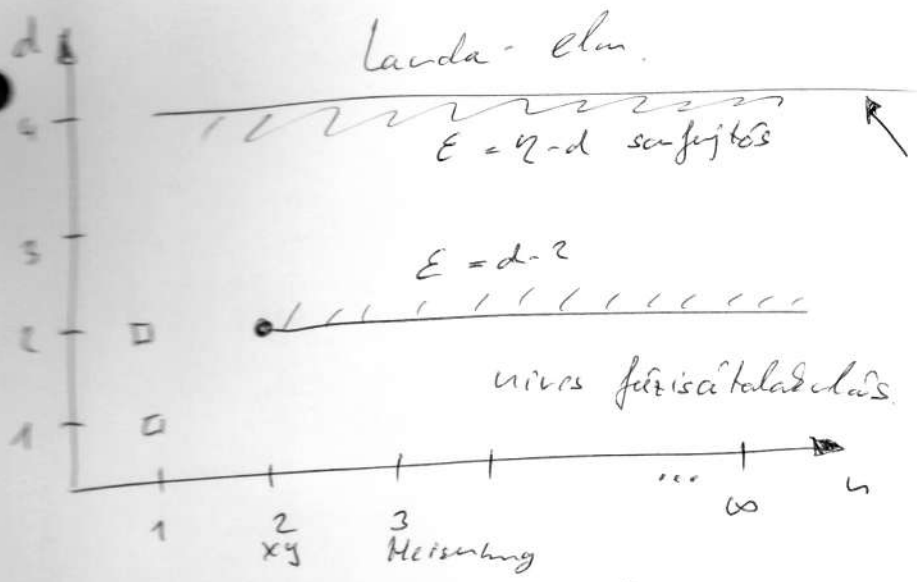 d
Landa-elm.
4
ε = 4-d sorfejtés
3
ε = d-2
2
nincs fázisátalakulás.
1
... n
1 2 3 ∞
xy Heisenberg